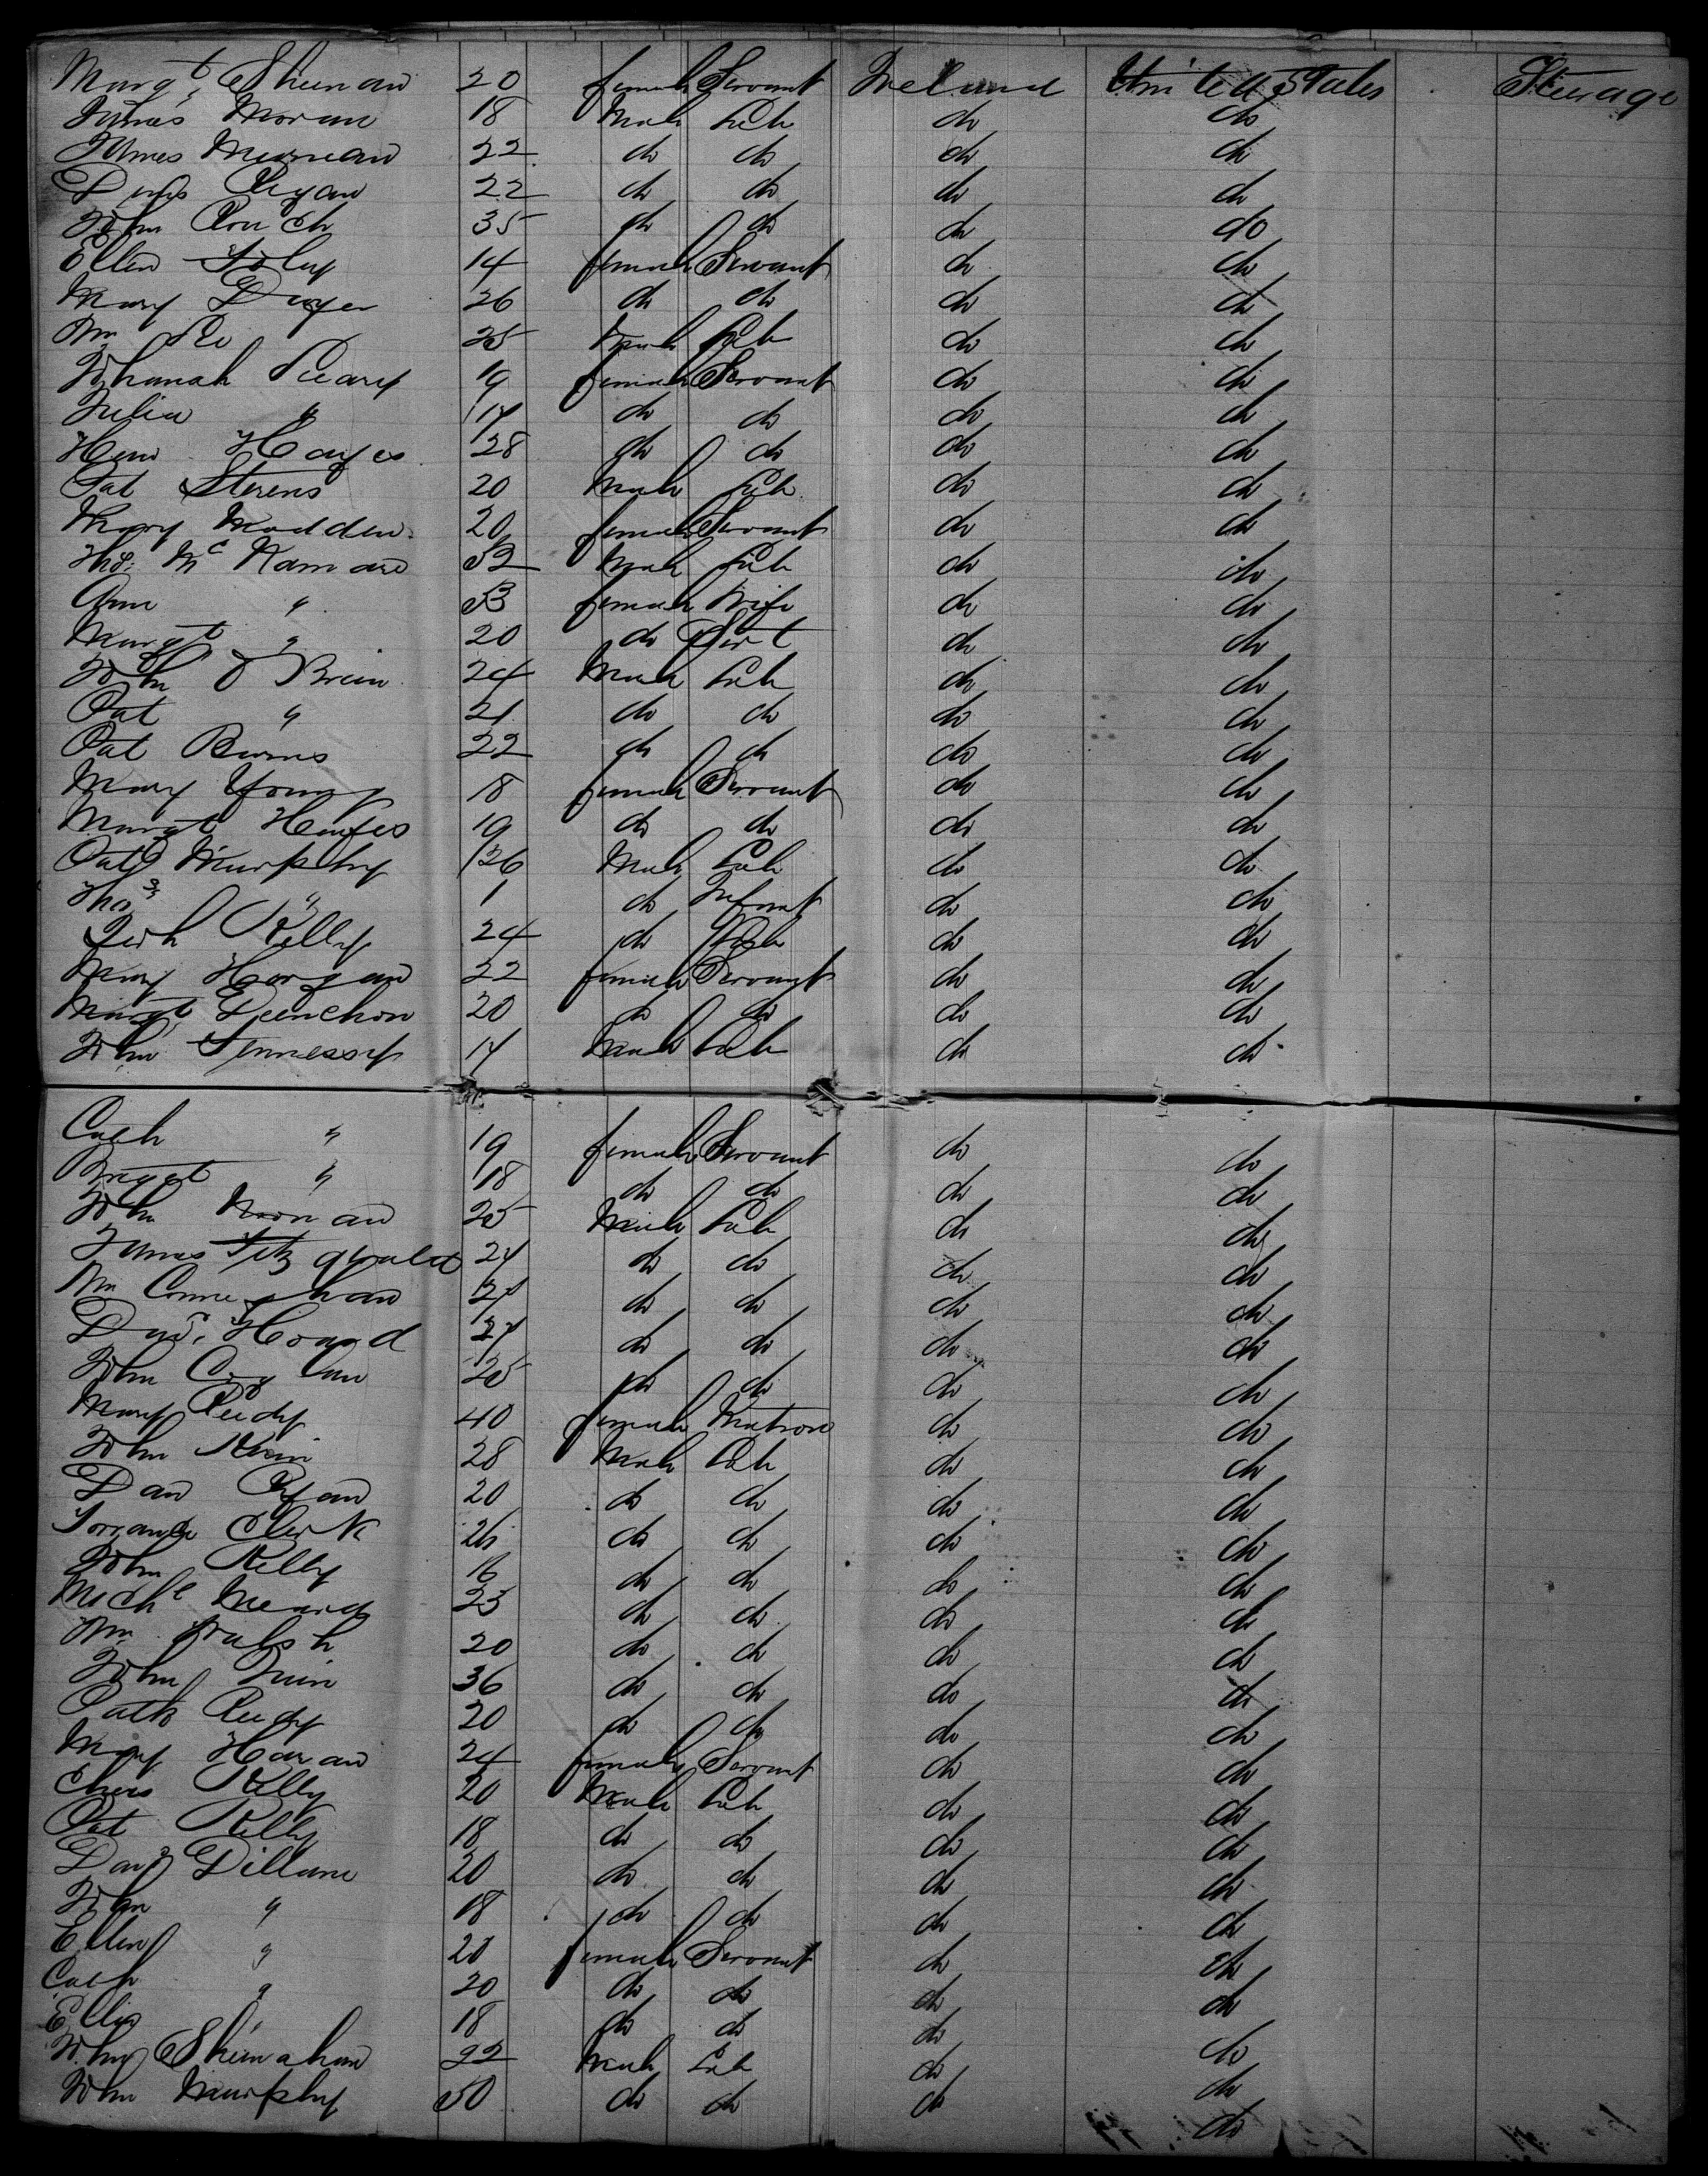 Margt Sheenan 20 female Servant Ireland United States Steerage
James Moran 18 Male Lab do do
James Meernan 22 do do do do
Ryan 22 do do do do
John Roach 35 do do do do
Ellen Foley 14 female Servant do do
Mary Dwyer 26 do do do do
Wm Do 25 Male Lab do do
Johanah Leary 19 female Servant do do
Julia " 17 do do do do
Hayes 28 do do do do
Pat Stevens 20 Male Lab do do
Mary Madden 20 female Servant do do
Thos Mc Namara 52 Male Lab do do
Ann " 53 female Wife do do
Margt " 20 do Servt do do
John O Brien 24 Male Lab do do
Pat " 21 do do do do
Pat Burns 22 do do do do
Mary Young 18 female Servant do do
Margt Hayes 19 do do do do
Patk Murphy 26 Male Lab do do
Thos " 1 do Infant do do
Kelly 24 do Lab do do
Mary Horgan 22 female Servant do do
Margt 20 do do do do
John Fennessy 17 Male Lab do do
Cath " 19 female Servant do do
Bridgt " 18 do do do do
John Noonan 25 Male Lab do do
James Fitzgerald 24 do do do do
Wm 27 do do do do
Howard 27 do do do do
John 25 do do do do
Mary Reidy 40 female Matron do do
John 28 Male Lab do do
Dan Ryan 20 do do do do
Clerk do do do do
John Kelly 16 do do do do
Michl 23 do do do do
Wm Walsh 20 do do do do
John Quin 36 do do do do
Patk Reidy 20 do do do do
Mary Haran 24 female Servant do do
Chas Kelly 20 Male Lab do do
Pat Kelly 18 do do do do
Dillane 20 do do do do
John " 18 do do do do
Ellen " 20 female Servant do do
Cath " 20 do do do do
" 18 do do do do
John Shinahan 22 Male Lab do do
John Murphy 50 do do do do